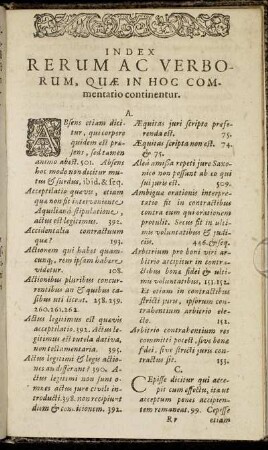 INDEX
RERUM AC VERBO-
RUM, QUÆ IN HOC COM-
mentatio continentur.
A.
ABsens etiam dici-
tur, qui corpore
quidem est præ-
sens, sed tamen
animo abest. 501. Absens
hoc modo non dicitur mu-
tus & surdus, ibid. & seq.
Acceptilatio quævis, etiam
qua non fit interveniente
Aquiliana stipulatione,
actus est legitimus. 392.
Accidentalia contractuum
quæ? 193.
Actionem qui habet quam-
cunq, rem ipsam habere
videtur. 108.
Actionibus pluribus concur-
rentibus an & quibus ca-
sibus uti liceat. 258. 259.
260. 261. 262.
Actus legitimus est quævis
acceptilatio. 392. Actus le-
gitimus est tutela dativa,
non testamentaria. 395.
Actus legitimi & legis actio-
nes an differant? 390. A-
ctus legitimi non sunt o-
mnes actus jure civili in-
troducti. 398. non recipiunt
diem & conditionem. 392.
Æquitas juri scripto præfe-
renda est. 75.
Æquitas scripta non est. 74.
& 75.
Alea amissa repeti jure Saxo-
nico non possunt ab eo qui
sui juris est. 509.
Ambigua orationis interpre-
tatio fit in contractibus
contra eum quo ratione non
proculit. Secus fit in ulti-
mis voluntatibus & judi-
ciis, 446. & seq.
Arbitrium pro boni viri ar-
bitrio accipitur in contra-
ctibus bonæ fidei & ulti-
mis voluntatibus, 151. 152.
Et etiam in contractibus
stricti juris, ipsorum con-
trahentium arbitrio ele-
cto. 152.
Arbitrio contrahentium res
committi potest, sive bonæ
fidei, sive stricti juris con-
tractus sit. 154.
C.
CEpisse dicitur qui acce-
pit cum effectu, ita ut
acceptum penes accipien-
tem remaneat. 99. Cepisse
Rr etiam